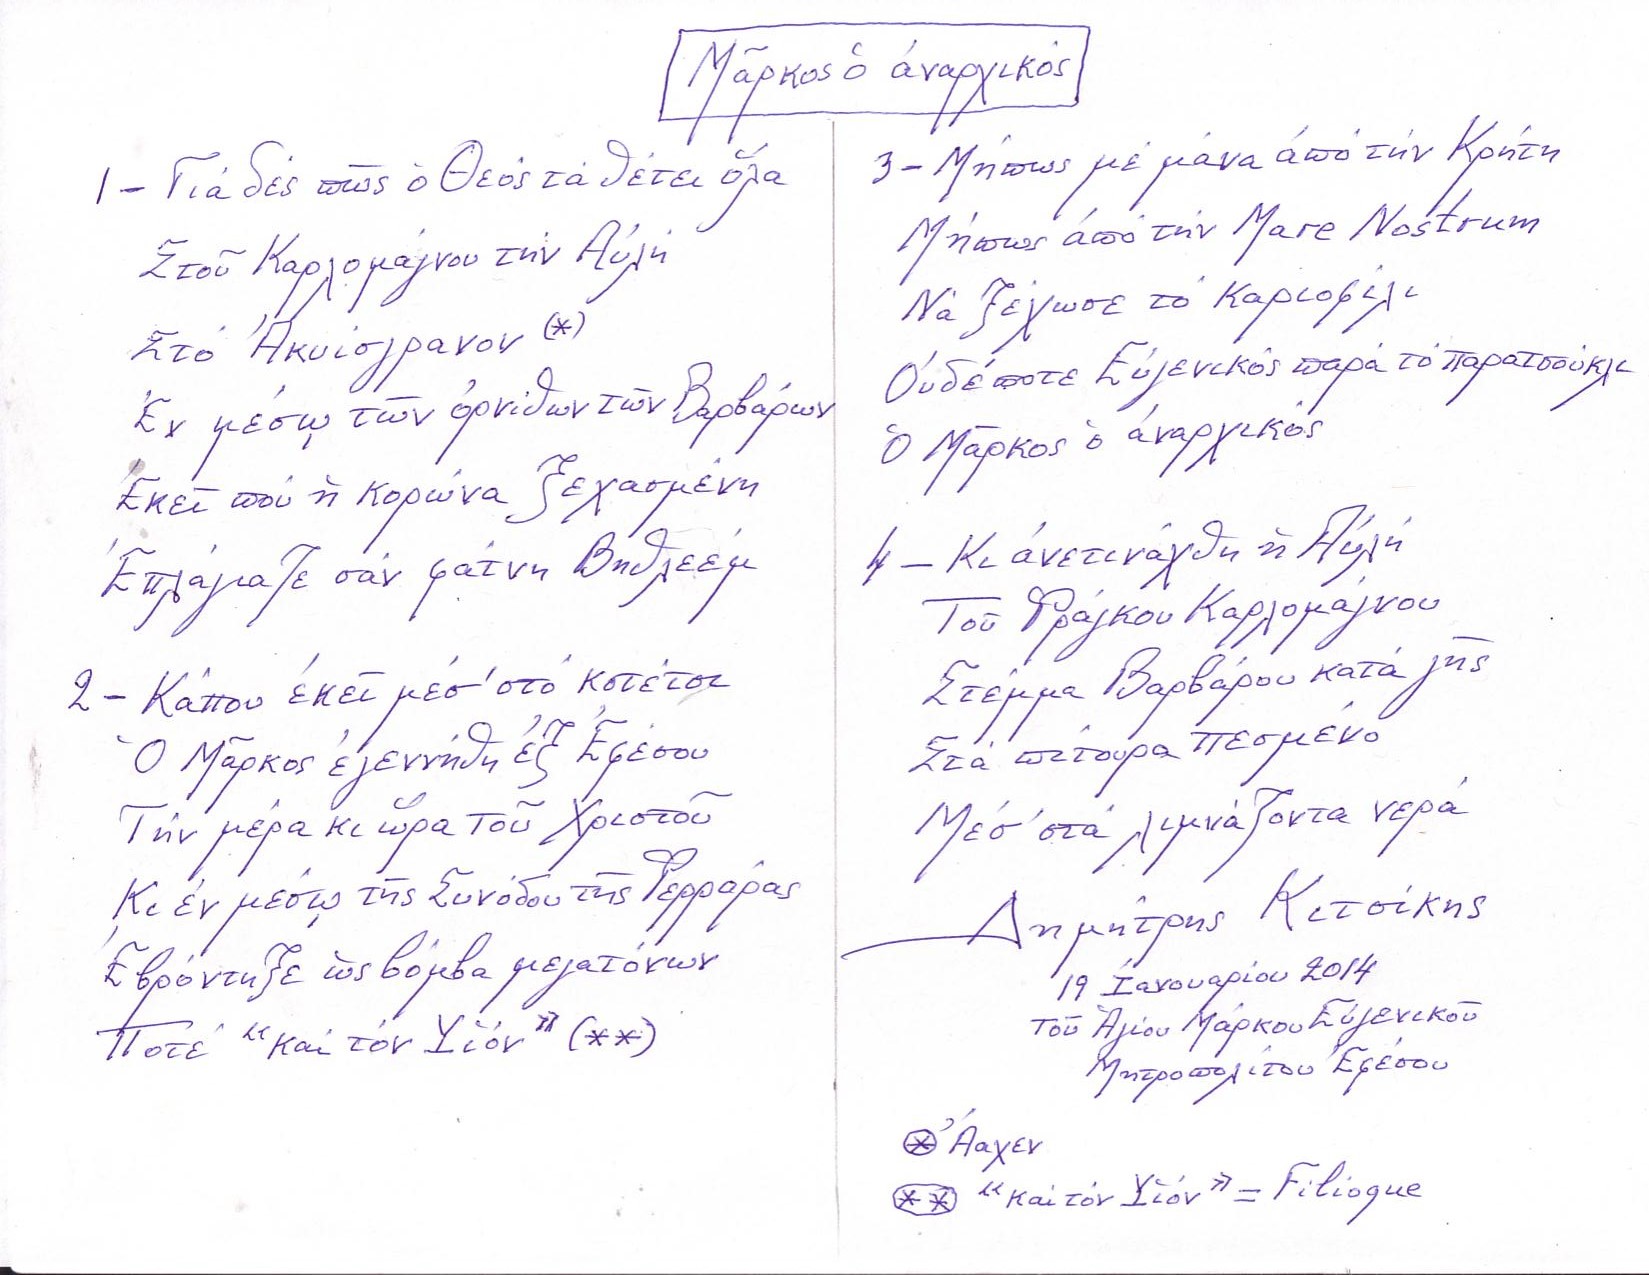 Μᾶρκος ὁ ἀναρχικός
1 – Γιά δές πῶς ὁ Θεός τά θέτει ὅλα
Στοῦ Καρλομάγνου τήν Αὐλή
Στό Ἀκυίσγρανον (*)
Ἐν μέσῳ τῶν ὀρνίθων τῶν Βαρβάρων
Ἐκεῖ πού ἡ κορώνα ξεχασμένη
Ἐπλάγιαζε σάν φάτνη Βηθλεέμ
2 – Κάπου ἐκεῖ μέσ' στό κοτέτσι
Ὁ Μᾶρκος ἐγεννήθη ἐξ Ἐφέσου
Τήν μέρα κι ὥρα τοῦ Χριστοῦ
Κι ἐν μέσῳ τῆς Συνόδου τῆς Φερράρας
Ἐβρόντηξε ὡς βόμβα μεγατόνων
Ποτέ «καί τόν Υἱόν» (**)
3 – Μήπως μέ μάνα ἀπό τήν Κρήτη
Μήπως ἀπό τήν Mare Nostrum
Νά ξέχωσε τό καριοφίλι
Οὐδέποτε Εὐγενικός παρά τό παρατσούκλι
Ὁ Μᾶρκος ὁ ἀναρχικός
4 – Κι ἀνετινάχθη ἡ Αὐλή
Τοῦ Φράγκου Καρλομάγνου
Στέμμα Βαρβάρου κατά γῆς
Στά πίτουρα πεσμένο
Μέσ' στά λιμνάζοντα νερά
Δημήτρης Κιτσίκης
19 Ἰανουαρίου 2014
τοῦ Ἁγίου Μάρκου Εὐγενικοῦ
Μητροπολίτου Ἐφέσου
(*) Ἄαχεν
(**) «καί τόν Υἱόν» = Filioque